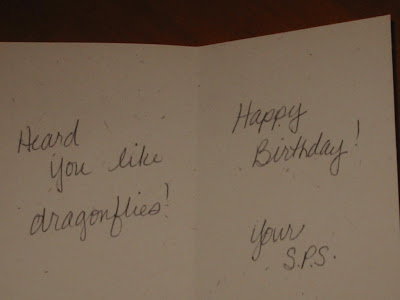 Heard
you like
dragonflies!
Happy
Birthday!
your
S.P.S.